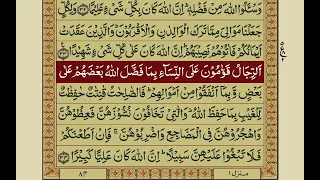 وَسْـَٔلُوا اللّٰهَ مِنْ فَضْلِهٖ ؕ اِنَّ اللّٰهَ كَانَ بِكُلِّ شَیْءٍ عَلِیْمًا ۝۳۲ وَلِكُلٍّ
جَعَلْنَا مَوَالِیَ مِمَّا تَرَكَ الْوَالِدٰنِ وَالْاَقْرَبُوْنَ ؕ وَالَّذِیْنَ عَقَدَتْ
اَیْمَانُكُمْ فَاٰتُوْهُمْ نَصِیْبَهُمْ ؕ اِنَّ اللّٰهَ كَانَ عَلٰی كُلِّ شَیْءٍ شَهِیْدًا ۝۳۳
اَلرِّجَالُ قَوّٰمُوْنَ عَلَی النِّسَآءِ بِمَا فَضَّلَ اللّٰهُ بَعْضَهُمْ عَلٰی
بَعْضٍ وَّبِمَاۤ اَنْفَقُوْا مِنْ اَمْوَالِهِمْ ؕ فَالصّٰلِحٰتُ قٰنِتٰتٌ حٰفِظٰتٌ
لِّلْغَیْبِ بِمَا حَفِظَ اللّٰهُ ؕ وَالّٰتِیْ تَخَافُوْنَ نُشُوْزَهُنَّ فَعِظُوْهُنَّ
وَاهْجُرُوْهُنَّ فِی الْمَضَاجِعِ وَاضْرِبُوْهُنَّ ۚ فَاِنْ اَطَعْنَكُمْ
فَلَا تَبْغُوْا عَلَیْهِنَّ سَبِیْلًا ؕ اِنَّ اللّٰهَ كَانَ عَلِیًّا كَبِیْرًا ۝۳۴
منزل ۱
۸۴